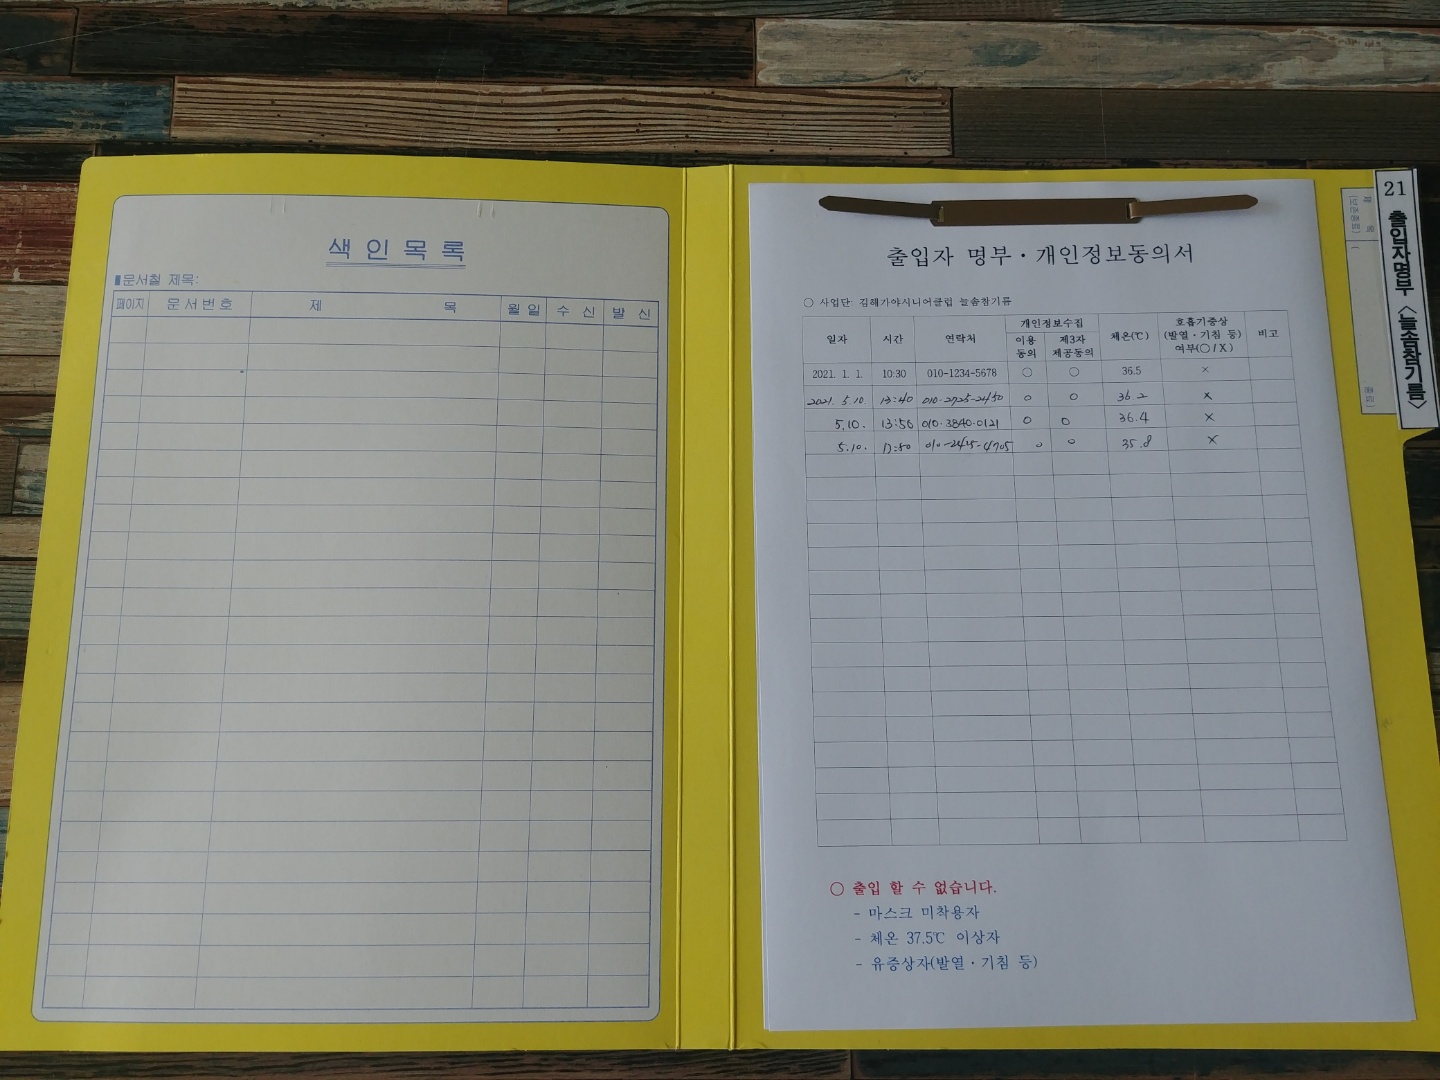 색인목록
문서철 제목:
페이지 문서번호 제 목 월일 수 신 발 신
21 출입자명부 <늘솜참기름>
출입자 명부·개인정보동의서
○ 사업단: 김해가야시니어클럽 늘솜참기름
일자 시간 연락처 개인정보수집 이용 동의 제3자 제공동의 체온(℃) 호흡기증상 (발열·기침 등) 여부(○/X) 비고
2021. 1. 1. 10:30 010-1234-5678 ○ ○ 36.5 ×
2021. 5.10 13:40 010-2725-2450 ○ ○ 36.2 ×
5.10. 13:50 010-3840-0121 ○ ○ 36.4 ×
5.10. ○ ○ 35.8 ×
○ 출입 할 수 없습니다.
- 마스크 미착용자
- 체온 37.5℃ 이상자
- 유증상자(발열·기침 등)